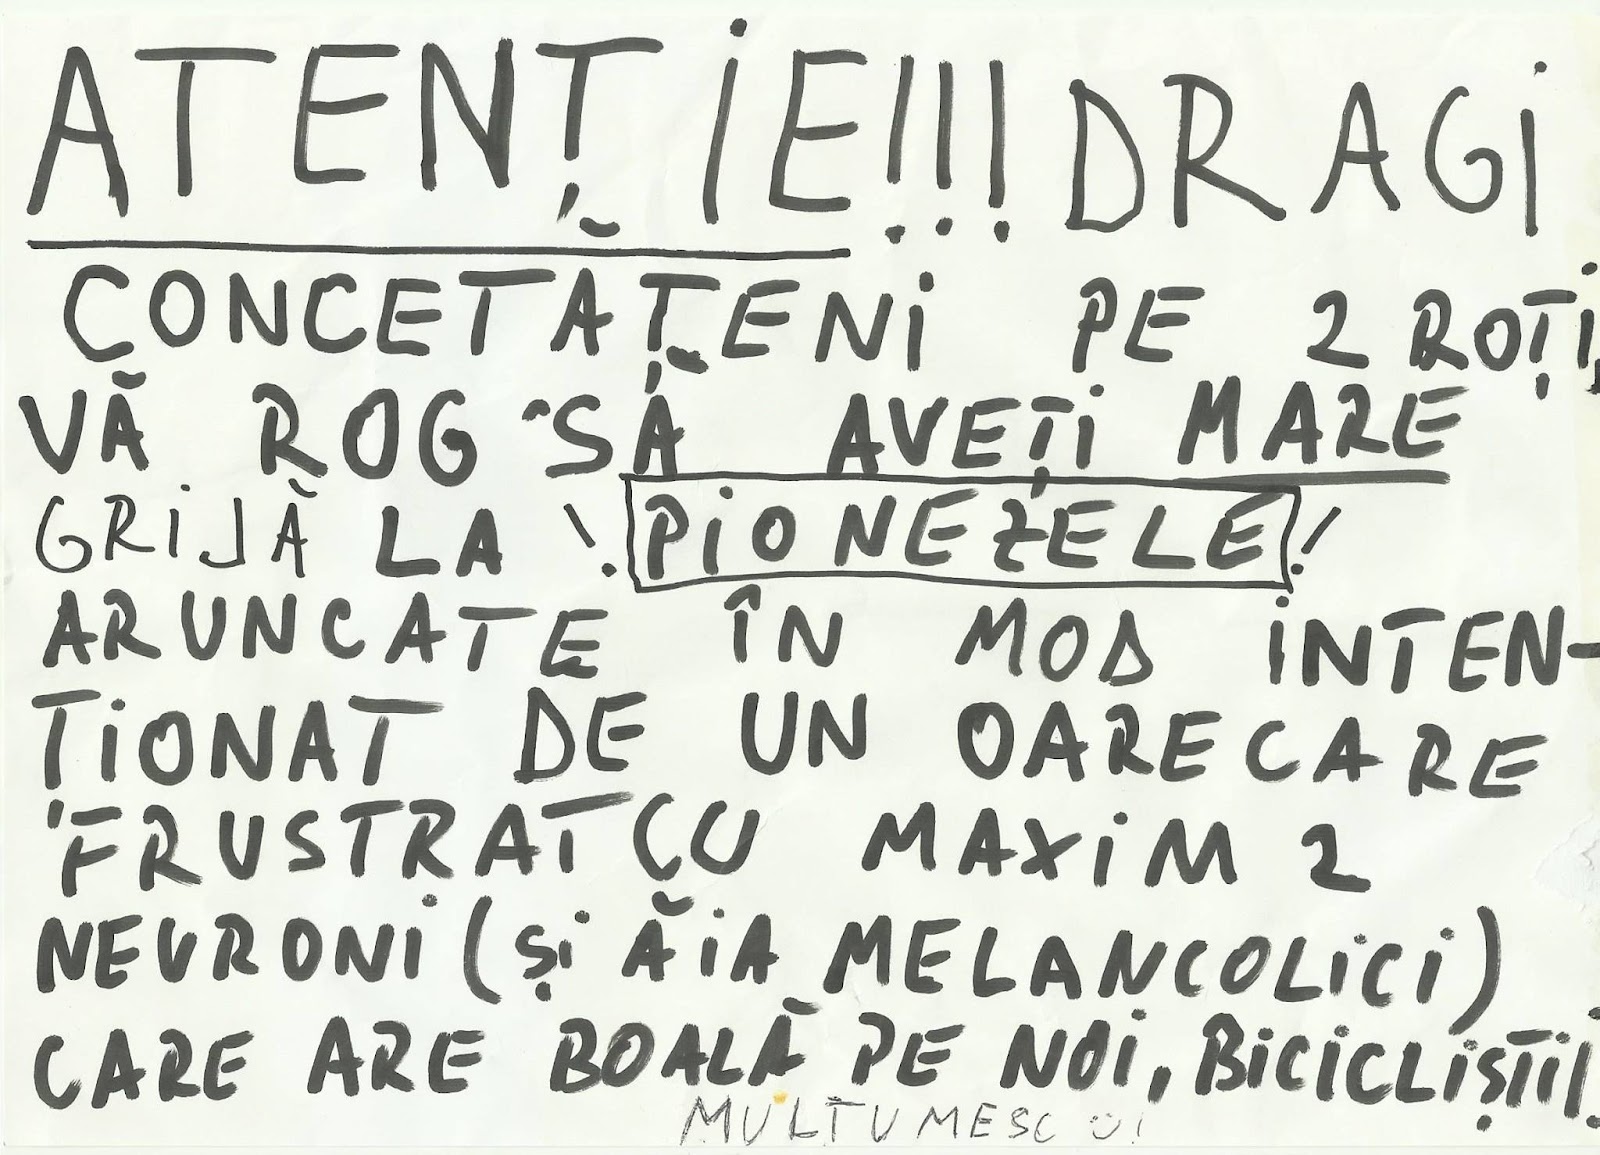 ATENȚIE!!! DRAGI
CONCETAȚENI PE 2 ROȚI,
VĂ ROG SĂ AVEȚI MARE
GRIJĂ LA ! PIONEZELE !
ARUNCATE ÎN MOD INTEN-
TIONAT DE UN OARECARE
FRUSTRAT CU MAXIM 2
NEURONI (ȘI ĂIA MELANCOLICI)
CARE ARE BOALĂ PE NOI, BICICLIȘTII!
MULTUMESC